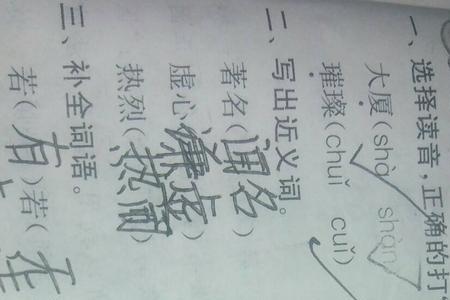 一、选择读音,正确的打
大厦(shà shàn)
璀璨(chuǐ cuǐ)
二、写出近义词。
著名(闻名)
虚心(谦虚)
热烈(热闹)
三、补全词语。
若(有)若(